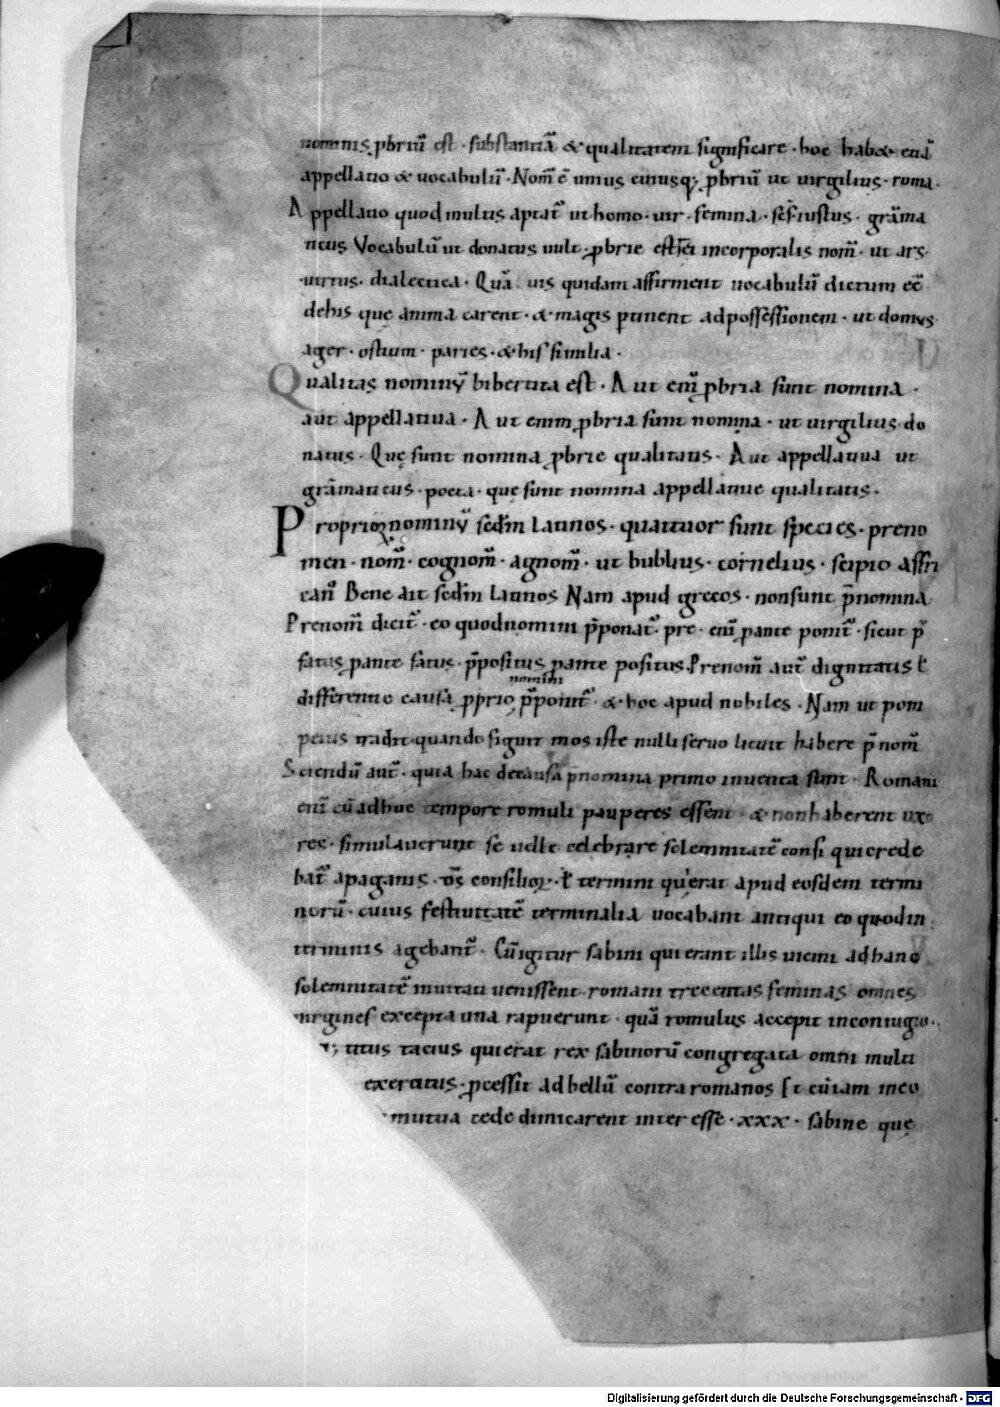 nominis ꝓbriū est · substantiā & qualitatem significare · hoc habet · etiā
appellatio & vocabulū · Nom̄ ē unius cuiusq; ꝓbriū ut virgilius · roma ·
Appellatio quod multis aptat̄ ut homo · vir · femina · iustus · grāma
ticus Vocabulū ut donatus vult · ꝓbrie est rei incorporalis nom̄ · ut ars ·
virtus · dialectica · Quāvis quidam affirment vocabulū dictum eē
dehis quę anima carent · & magis ꝑtinent adpossessionem · ut domus
ager · ostium · paries · & his similia ·
Qualitas nominū bibertita est · Aut enī ꝓbria sunt nomina ·
aut appellativa · Aut enim ꝓbria sunt nomina · ut virgilius · do
natus · Quę sunt nomina ꝓbrie qualitatis · Aut appellativa ut
grāmaticus · poeta · que sunt nomina appellative qualitatis ·
Propriorꝫ nominū sedm̄ latinos · quattuor sunt species · preno
men · nom̄ · cognom̄ · agnom̄ · ut bublius · cornelius · scipio affri
can̄ Bene ait sedm̄ latinos Nam apud grecos · nonsunt p̄nomina
Prenom̄ dicit̄ · eo quodnomini p̄ponat̄ · pre · enī pante ponit̄ · sicut p̄
fatus pante fatus · p̄positus pante positus Prenom̄ aut̄ dignitatis ł
nomini
differentię causa ꝓprio p̄ponit̄ · & hoc apud nobiles · Nam ut pom
peius tradit · quando sigunt mos iste nulli servo licuit habere p̄nom̄
Sciendū aut̄ · quia hac decausa p̄nomina primo inventa sunt · Romani
enī cū adhuc tempore romuli pauperes essent · & nonhaberent uxo
res · simulaverunt se velle celebrare solemnitatē consi qui crede
bat̄ apaganis · ds̄ consiliorꝫ · ł termini qui erat apud eosdem termi
norū · cuius festivitatē terminalia vocabant antiqui eo quodin
terminis agebant̄ · Cū igitur sabini qui erant illis vicini adhanc
solemnitatē invitati venissent · romani trecentas feminas omnes
virgines excepta una rapuerunt · quā romulus accepit inconiugio ·
titus tacius quierat rex sabinorū congregata omni multi
exercitus · ꝓcessit adbellū contra romanos Et cū iam inco
mutua cede dimicarent inter esse · xxx · sabine quę
Digitalisierung gefördert durch die Deutsche Forschungsgemeinschaft - DFG